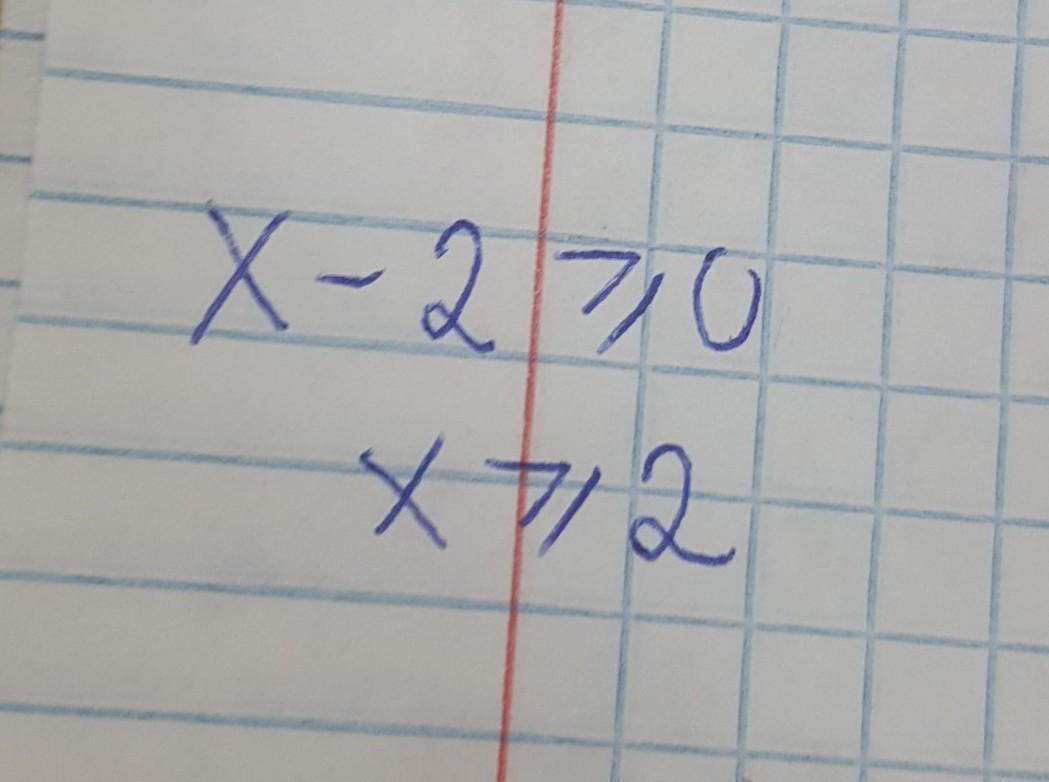 x - 2 ⩾ 0
x ⩾ 2